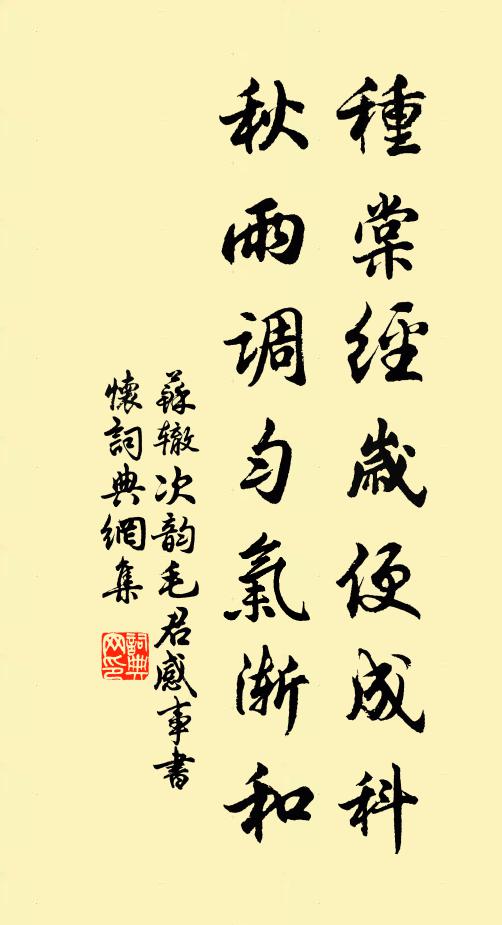 種棠經歲便成科
秋雨調勻氣漸和
蘇辙次韵毛君感事書
懷詞典網集
詞典
网印